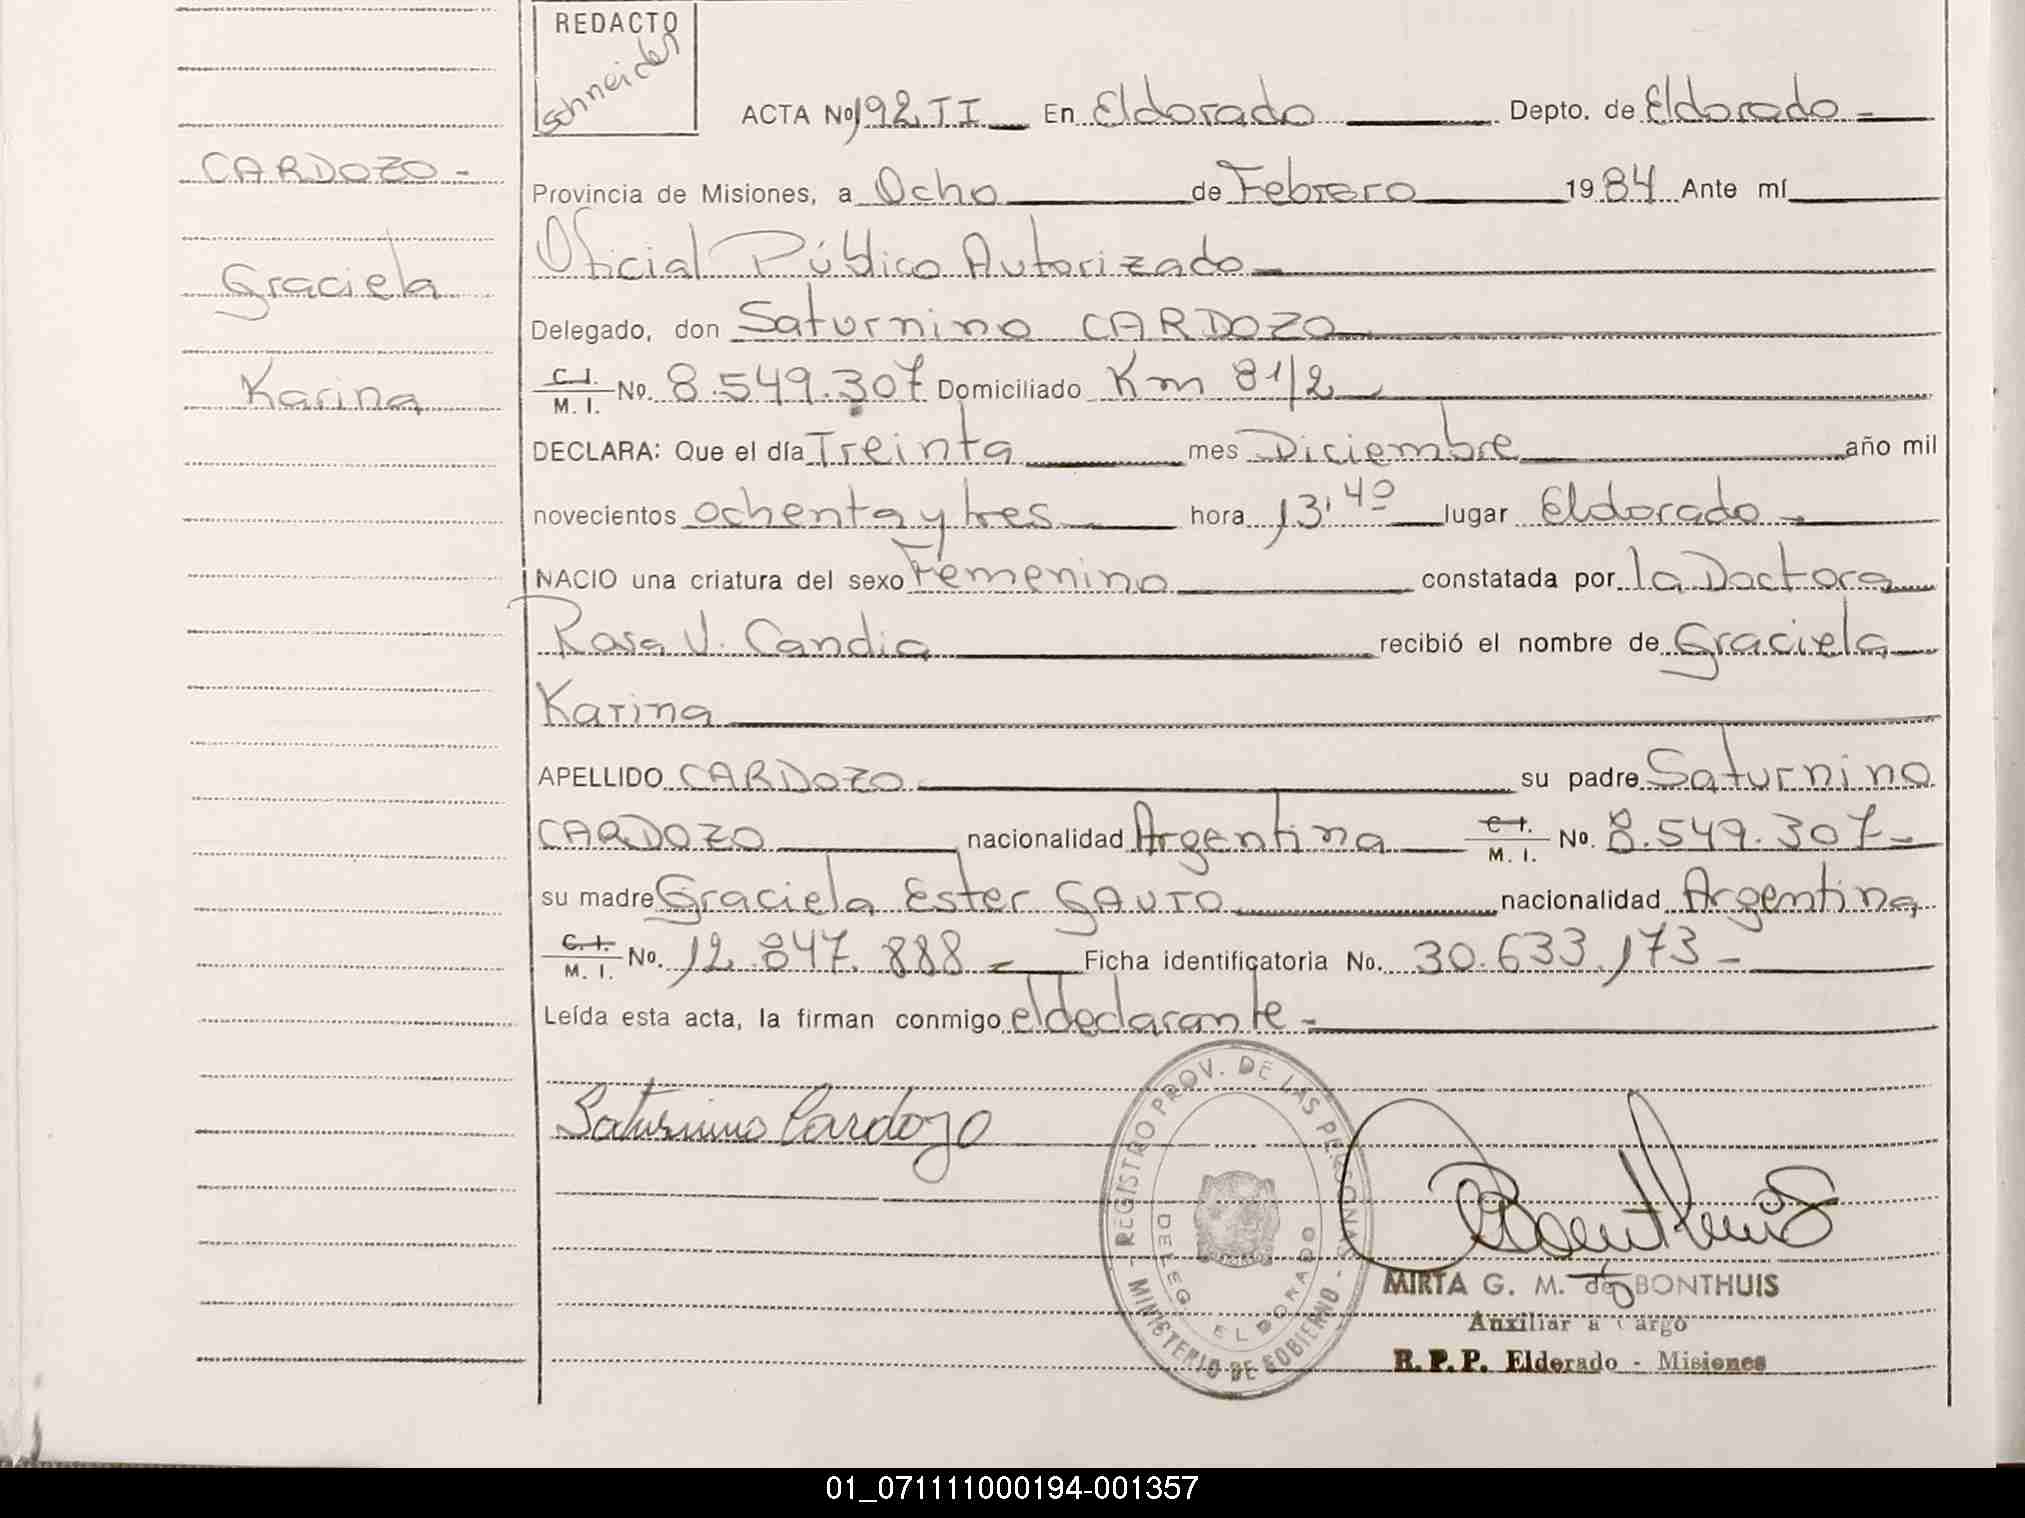 REDACTO
Schneider
ACTA No 192 II En Eldorado Depto. de Eldorado
CARDOZO -
Graciela
Karina
Provincia de Misiones, a Ocho de Febrero 1984 Ante mí
Oficial Público Autorizado
Delegado, don Saturnino CARDOZO
C.I. M. I. No. 8.549.307 Domiciliado Km 8 1/2
DECLARA: Que el día Treinta mes Diciembre año mil
novecientos ochenta y tres hora 13,40 lugar Eldorado
NACIO una criatura del sexo Femenino constatada por la Doctora
Rosa V. Candia recibió el nombre de Graciela
Karina
APELLIDO CARDOZO su padre Saturnino
CARDOZO nacionalidad Argentina C.I. M. I. No. 8.549.307-
su madre Graciela Ester GAUTO nacionalidad Argentina
C.I. M. I. No. 12.847.888 - Ficha identificatoria No. 30.633.173 -
Leída esta acta, la firman conmigo el declarante -
Saturnino Cardozo
REGISTRO PROV. DE LAS PERSONAS
- MINISTERIO DE GOBIERNO -
DELEG. ELDORADO
MIRTA G. M. de BONTHUIS
Auxiliar a Cargo
R. P. P. Eldorado - Misiones
01_071111000194-001357